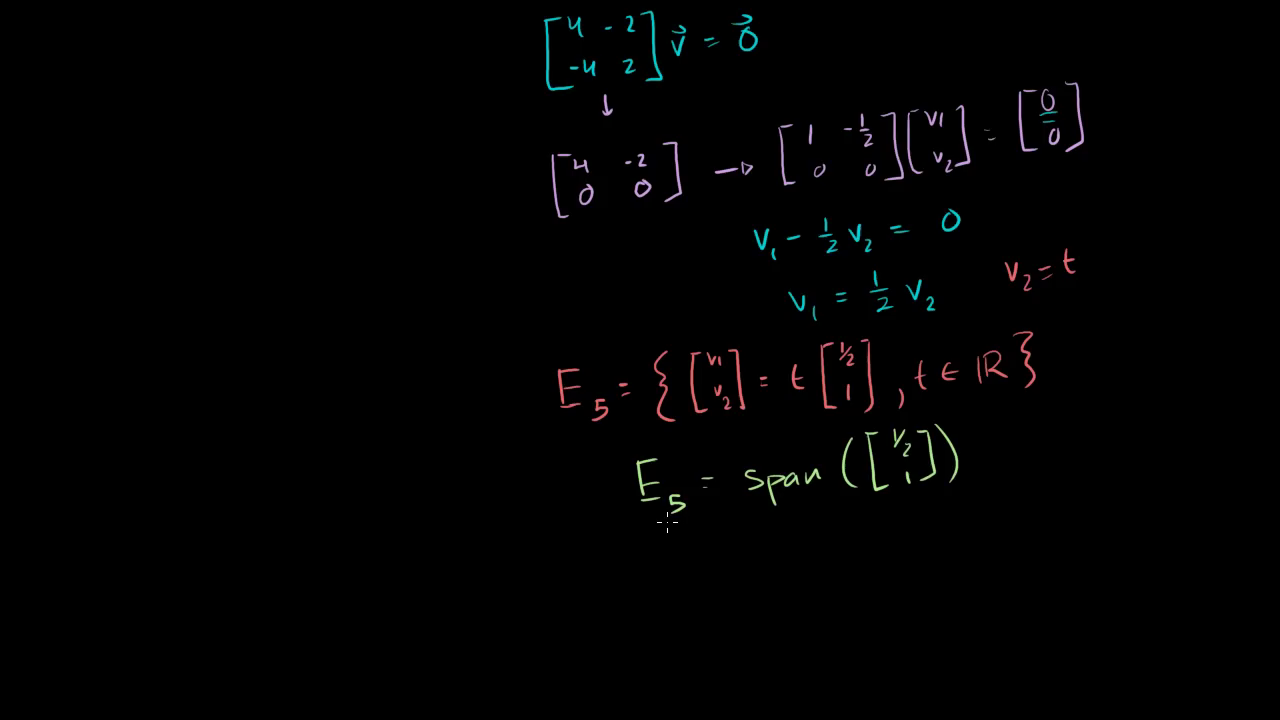 [4 -2
-4 2] v⃗ = 0⃗
↓
[4 -2
0 0] → [1 -1/2
0 0] [v₁
v₂] = [0
0]
v₁ - 1/2 v₂ = 0
v₁ = 1/2 v₂ v₂ = t
E₅ = { [v₁
v₂] = t [1/2
1] , t ∈ ℝ }
E₅ = span ( [1/2
1] )